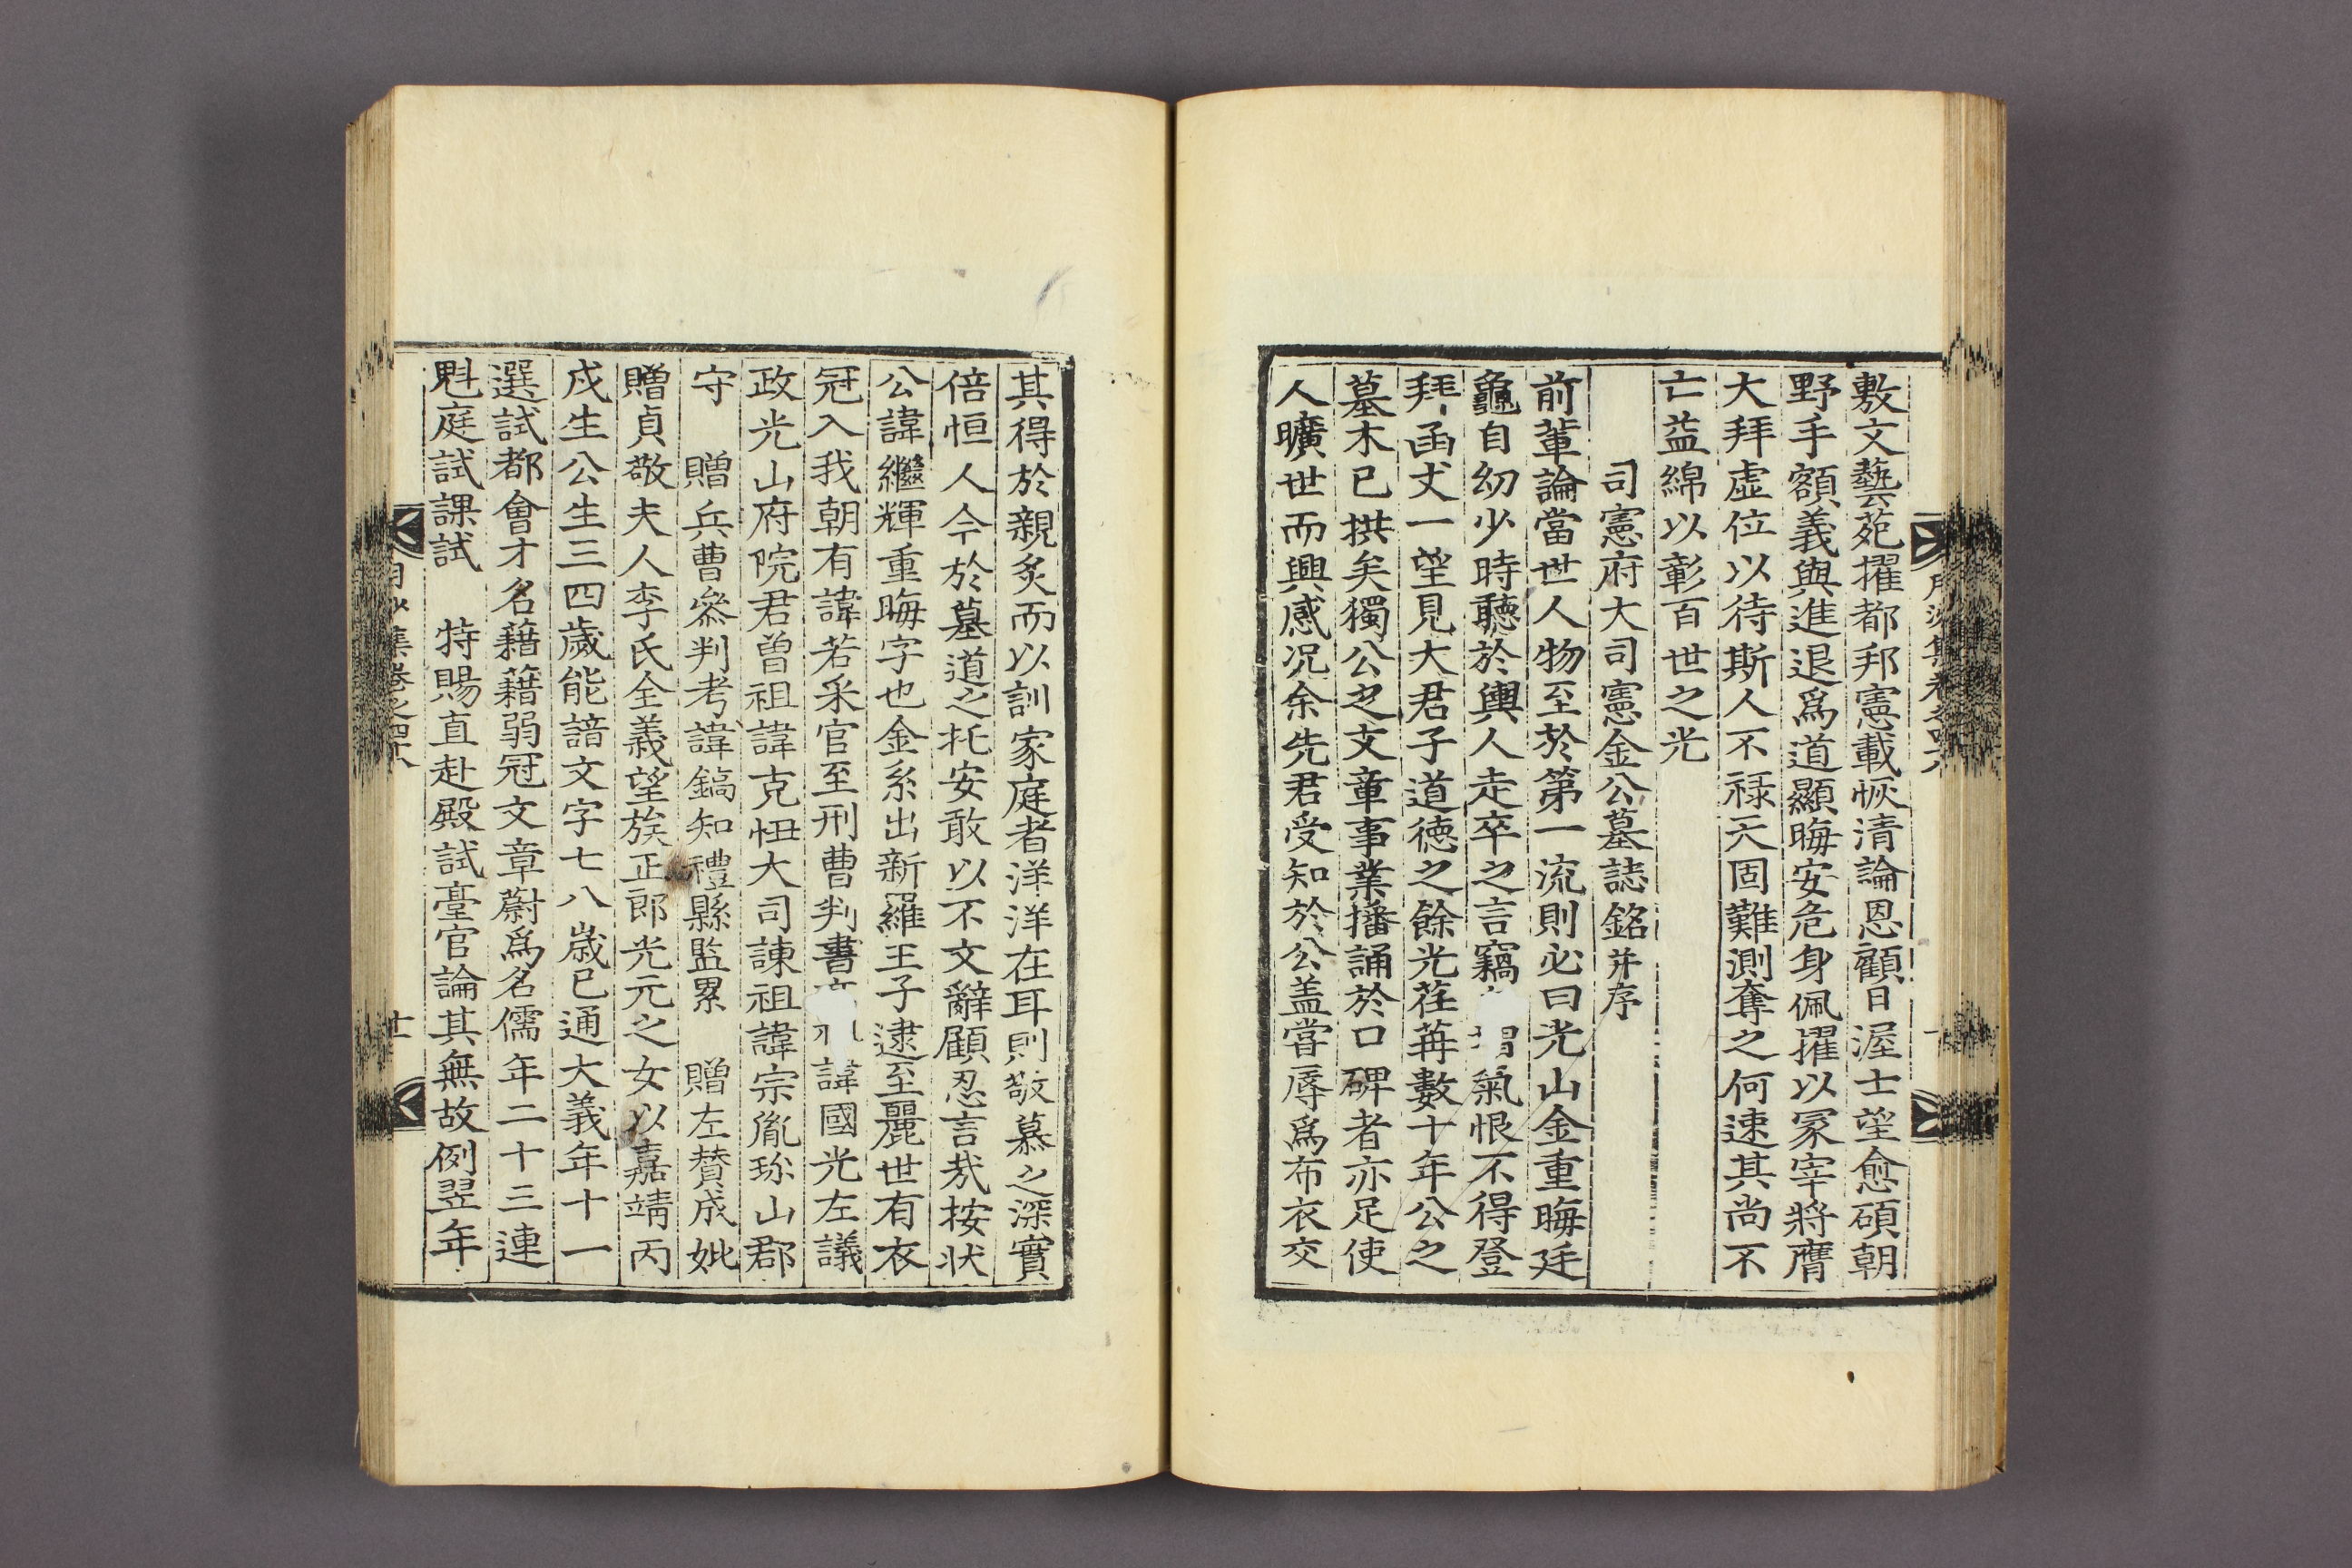 敷文藝苑擢都邦憲載恢淸論恩顧日渥士望愈碩朝
野手額義與進退爲道顯晦安危身佩擢以冢宰將膺
大拜虛位以待斯人不祿天固難測奪之何速其尚不
亡益綿以彰百世之光
司憲府大司憲金公墓誌銘并序
前輩論當世人物至於第一流則必曰光山金重晦廷
龜自幼少時聽於輿人走卒之言竊 氣恨不得登
拜函丈一望見大君子道德之餘光荏苒數十年公之
墓木已拱矣獨公之文章事業播誦於口碑者亦足使
人曠世而興感况余先君受知於公盖嘗辱爲布衣交
其得於親炙而以訓家庭者洋洋在耳則敬慕之深實
倍恒人今於墓道之托安敢以不文辭顧忍言㢤按狀
公諱繼輝重晦字也金系出新羅王子逮至麗世有衣
冠入我朝有諱若采官至刑曹判書 諱國光左議
政光山府院君曾祖諱克忸大司諫祖諱宗胤珎山郡
守 贈兵曹叅判考諱鎬知禮縣監累 贈左賛成妣
贈貞敬夫人李氏全義望族正郞光元之女以嘉靖丙
戌生公生三四歲能諳文字七八歲已通大義年十一
選試都會才名藉藉弱冠文章蔚爲名儒年二十三連
魁庭試課試 特賜直赴殿試臺官論其無故例翌年
集卷之四十八